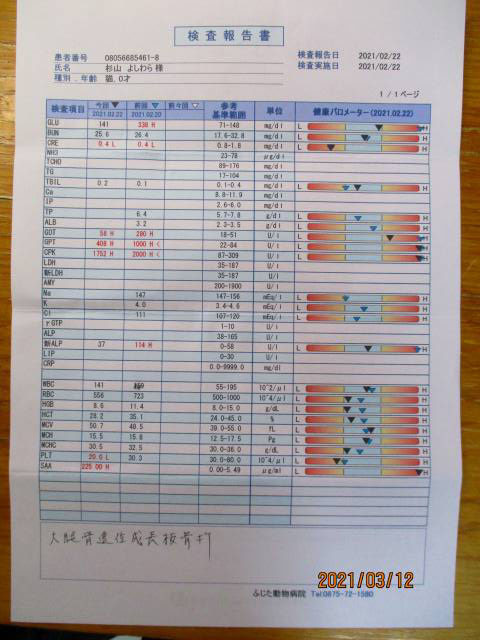 検査報告書
患者番号 08056685461-8 検査報告日 2021/02/22
氏名 杉山 よしわら 様 検査実施日 2021/02/22
種別.年齢 猫, 0才
1 / 1ページ
検査項目 今回▼ 前回▼ 前々回▽ 参考 基準範囲 単位 健康バロメーター(2021.02.22)
2021.02.22 2021.02.20
GLU 141 338 H 71-148 mg/dl L H
BUN 25.6 26.4 17.6-32.8 mg/dl L H
CRE 0.4 L 0.4 L 0.8-1.8 mg/dl L H
NH3 23-78 μg/dl
TCHO 89-176 mg/dl
TG 17-104 mg/dl
TBIL 0.2 0.1 0.1-0.4 mg/dl L H
Ca 8.8-11.9 mg/dl
IP 2.6-6.0 mg/dl
TP 6.4 5.7-7.8 g/dl L H
ALB 3.2 2.3-3.5 g/dl L H
GOT 58 H 280 H 18-51 U/l L H
GPT 408 H 1000 H < 22-84 U/l L H
CPK 1752 H 2000 H < 87-309 U/l L H
LDH 35-187 U/l
新LDH 35-187 U/l
AMY 200-1900 U/l
Na 147 147-156 mEq/l L H
K 4.0 3.4-4.6 mEq/l L H
Cl 111 107-120 mEq/l L H
γGTP 1-10 U/l
ALP 38-165 U/l
新ALP 37 114 H 0-58 U/l L H
LIP 0-30 U/l
CRP 0.0-9999.0 mg/dl
WBC 141 55-195 10^2/μl L H
RBC 556 723 500-1000 10^4/μl L H
HGB 8.6 11.4 8.0-15.0 g/dL L H
HCT 28.2 35.1 24.0-45.0 % L H
MCV 50.7 48.5 39.0-55.0 fL L H
MCH 15.5 15.8 12.5-17.5 Pg L H
MCHC 30.5 32.5 30.0-36.0 g/dL L H
PLT 20.0 L 30.3 30.0-80.0 10^4/μl L H
SAA 225.00 H 0.00-5.49 μg/ml L H
大腿骨遠位成長板骨折
2021/03/12
ふじた動物病院 Tel:0875-72-1580